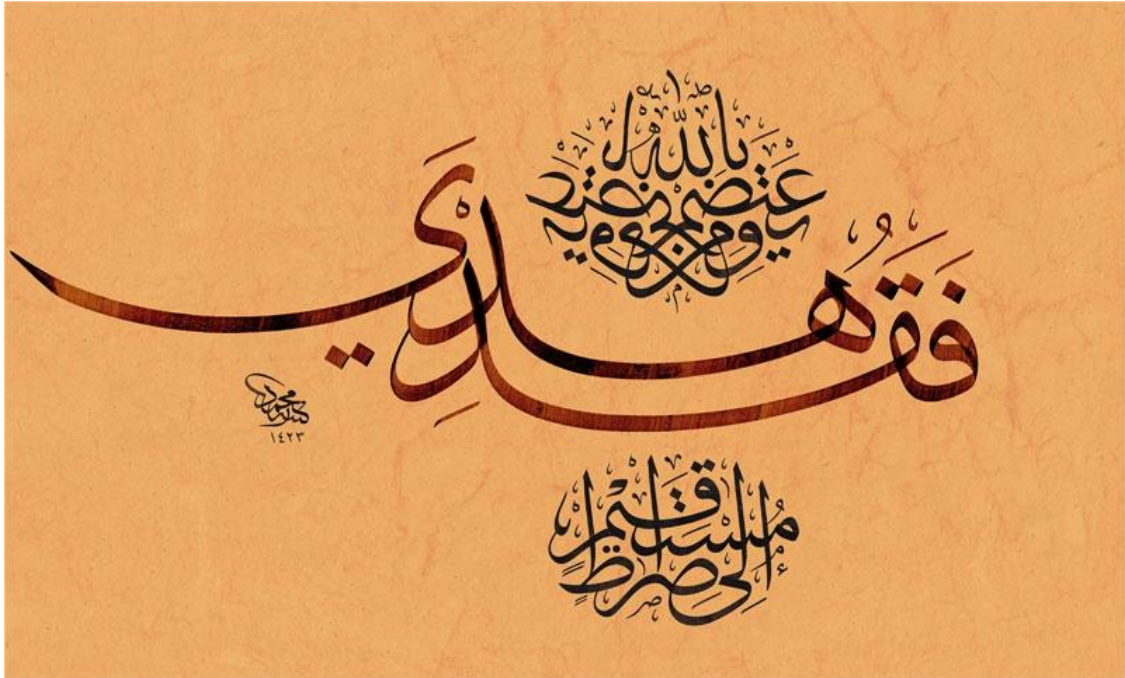 وَمَن يَعْتَصِم بِاللَّهِ
فَقَدْ هُدِيَ
إِلَى صِرَاطٍ مُسْتَقِيمٍ
محمود
١٤٢٣